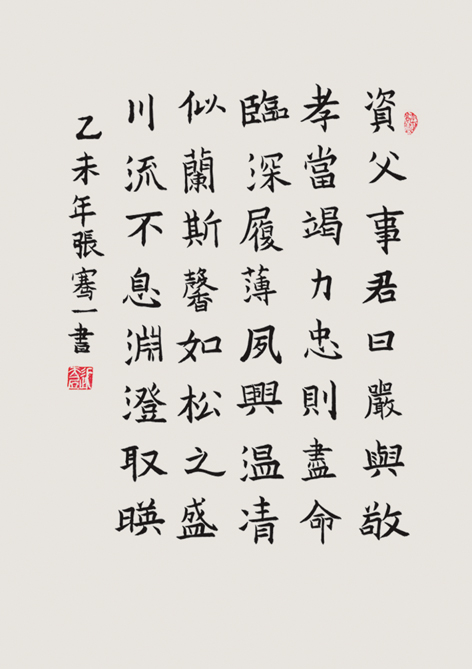 資父事君曰嚴與敬
孝當竭力忠則盡命
臨深履薄夙興温凊
似蘭斯馨如松之盛
川流不息淵澄取暎
乙未年張騫一書